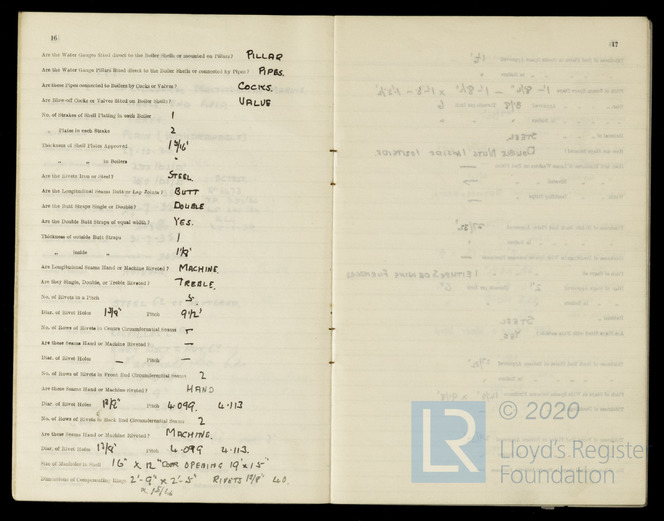 16
Are the Water Gauges fitted direct to the Boiler Shells or mounted on Pillars? PILLAR
Are the Water Gauge Pillars fitted direct to the Boiler Shells or connected by Pipes? PIPES.
Are these Pipes connected to Boilers by Cocks or Valves? COCKS.
Are Blow-off Cocks or Valves fitted on Boiler Shells? VALVE
No. of Strakes of Shell Plating in each Boiler 1
" Plates in each Strake 2
Thickness of Shell Plates Approved 1 5/16"
" " in Boilers "
Are the Rivets Iron or Steel? STEEL.
Are the Longitudinal Seams Butt or Lap Joints? BUTT
Are the Butt Straps Single or Double? DOUBLE
Are the Double Butt Straps of equal width? YES.
Thickness of outside Butt Straps 1
" inside " 1 1/8"
Are Longitudinal Seams Hand or Machine Riveted? MACHINE.
Are they Single, Double, or Treble Riveted? TREBLE.
No. of Rivets in a Pitch 5
Diar. of Rivet Holes Pitch 9 1/2"
No. of Rows of Rivets in Centre Circumferential Seams
Are these Seams Hand or Machine Riveted? —
Diar. of Rivet Holes — Pitch —
No. of Rows of Rivets in Front End Circumferential Seams 2
Are these Seams Hand or Machine Riveted? HAND
Diar. of Rivet Holes Pitch 4.099. 4.113
No. of Rows of Rivets in Back End Circumferential Seams 2
Are these Seams Hand or Machine Riveted? MACHINE.
Diar. of Rivet Holes Pitch 4.099 4.113.
Size of Manholes in Shell 16" X 12" DOOR OPENING 19" X 15"
Dimensions of Compensating Rings 2'-9" X 2'-5" RIVETS
X 15/16
17
© 2020
LR
Lloyd's Register
Foundation